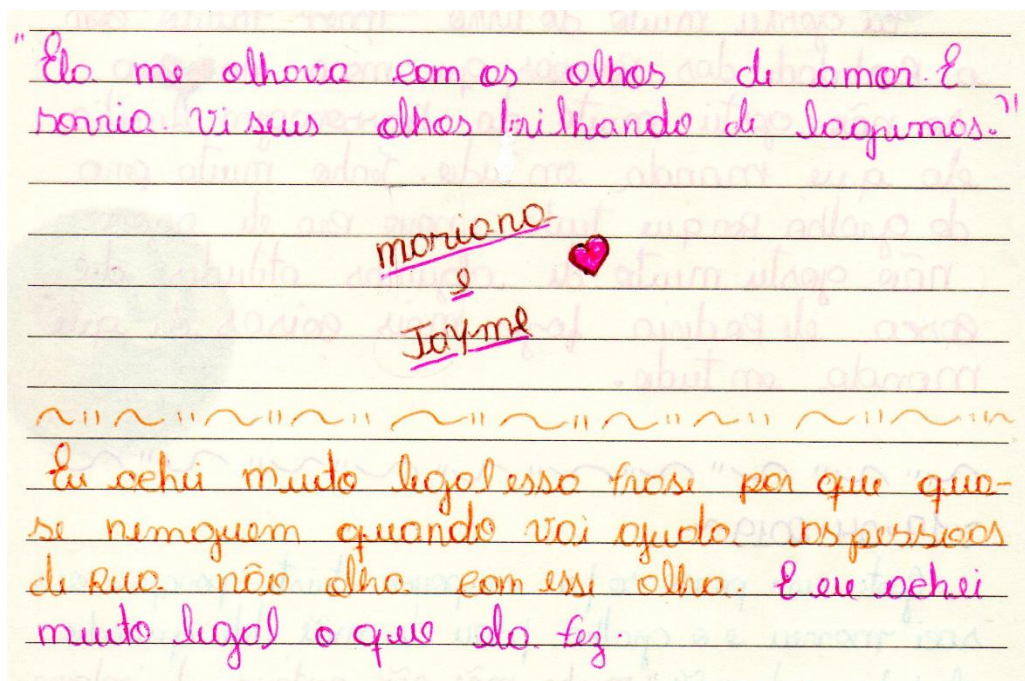 "Ela me olhava com os olhos de amor. E
sorria. Vi seus olhos brilhando de lagrimas."
mariana
e
Jayme
Eu achei muito legal essa frase por que qua-
se nemguem quando vai ajuda as pessoas
de rua não olha com esse olha. E eu achei
muito legal o que ela fez